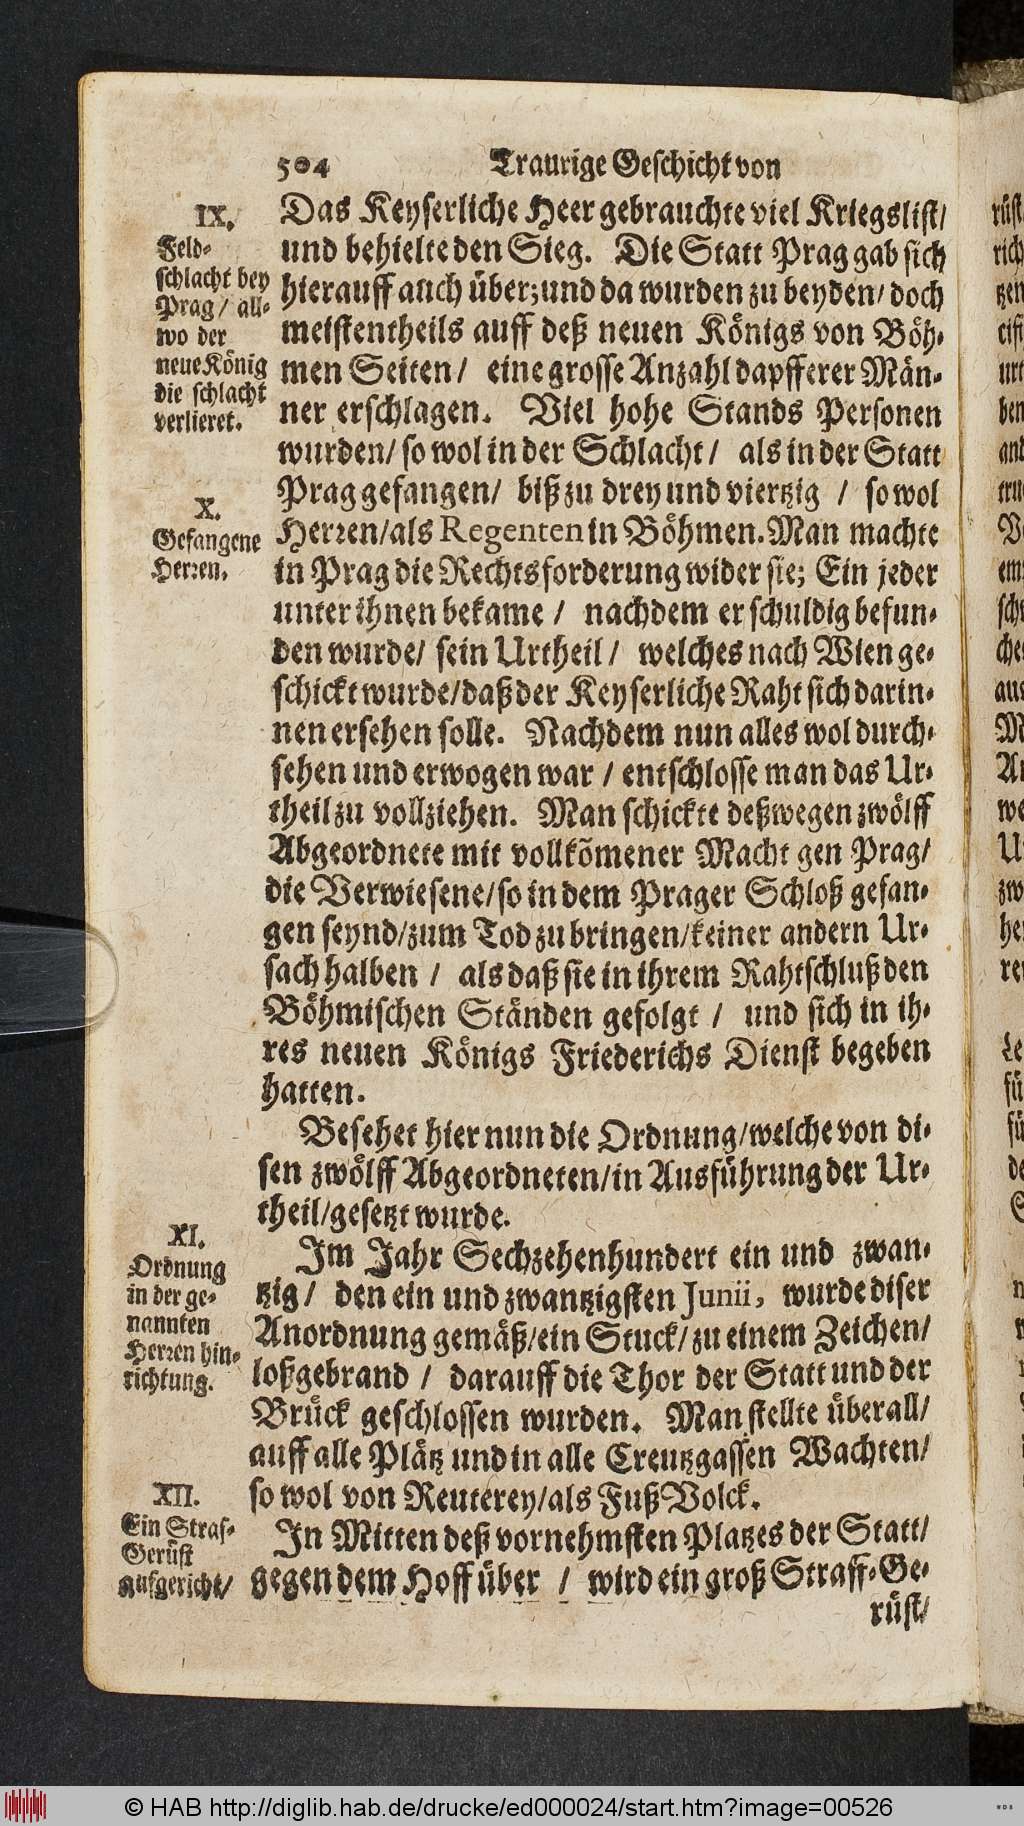 504 Traurige Geschicht von
IX.
Feld-
schlacht bey
Prag/ all-
wo der
neue König
die schlacht
verlieret.
Das Keyserliche Heer gebrauchte viel Kriegslist/
und behielte den Sieg. Die Statt Prag gab sich
hierauff auch über; und da wurden zu beyden/ doch
meistentheils auff deß neuen Königs von Böh-
men Seiten/ eine grosse Anzahl dapfferer Män-
ner erschlagen. Viel hohe Stands Personen
wurden/ so wol in der Schlacht/ als in der Statt
Prag gefangen/ biß zu drey und viertzig / so wol
X.
Gefangene
Herren.
Herren/als Regenten in Böhmen. Man machte
in Prag die Rechtsforderung wider sie; Ein jeder
unter ihnen bekame / nachdem er schuldig befun-
den wurde/ sein Urtheil/ welches nach Wien ge-
schickt wurde/daß der Keyserliche Raht sich darin-
nen ersehen solle. Nachdem nun alles wol durch-
sehen und erwogen war / entschlosse man das Ur-
theil zu vollziehen. Man schickte deßwegen zwölff
Abgeordnete mit vollkõmener Macht gen Prag/
die Verwiesene/so in dem Prager Schloß gefan-
gen seynd/zum Tod zu bringen/keiner andern Ur-
sach halben / als daß sie in ihrem Rahtschluß den
Böhmischen Ständen gefolgt / und sich in ih-
res neuen Königs Friederichs Dienst begeben
hatten.
Besehet hier nun die Ordnung/welche von di-
sen zwölff Abgeordneten/in Ausführung der Ur-
theil/gesetzt wurde.
XI.
Ordnung
in der ge-
nannten
Herren hin-
richtung.
Im Jahr Sechzehenhundert ein und zwan-
tzig/ den ein und zwantzigsten Junii, wurde diser
Anordnung gemäß/ein Stuck/zu einem Zeichen/
loßgebrand / darauff die Thor der Statt und der
Brück geschlossen wurden. Man stellte überall/
auff alle Plätz und in alle Creutzgassen Wachten/
so wol von Reuterey/als Fuß Volck.
XII.
Ein Straf-
Gerüst
aufgericht/
In Mitten deß vornehmsten Platzes der Statt/
gegen dem Hoff über / wird ein groß Straff-Ge-
rüst/
© HAB http://diglib.hab.de/drucke/ed000024/start.htm?image=00526